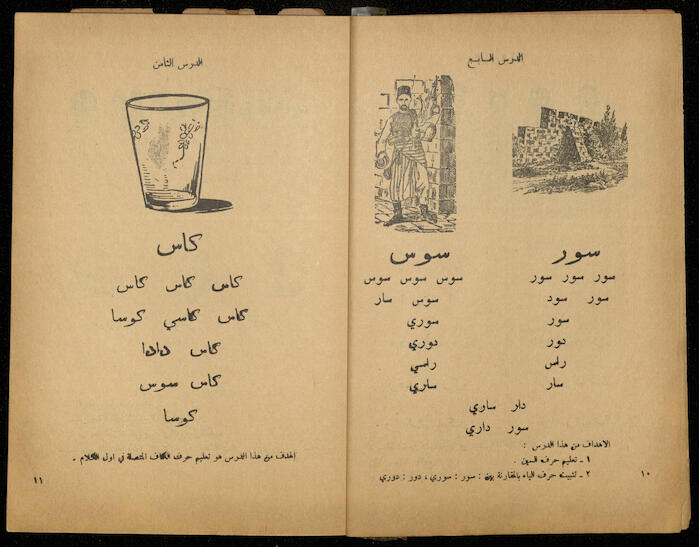 الدرس السابع
سور سوس
سور سور سور سوس سوس سوس
سور سود سوس سار
سور سوري
دور دوري
راس راسي
سار ساري
دار ساري
سور داري
الاهداف من هذا الدرس :
١ - تعليم حرف السين .
٢ - تثبيت حرف الياء بالمقارنة بين : سور : سوري ، دور : دوري
١٠
الدرس الثامن
كاس
كاس كاس كاس
كاس كاسي كوسا
كاس دادا
كاس سوس
كوسا
الهدف من هذا الدرس هو تعليم حرف الكاف المتصلة في اول الكلام .
١١